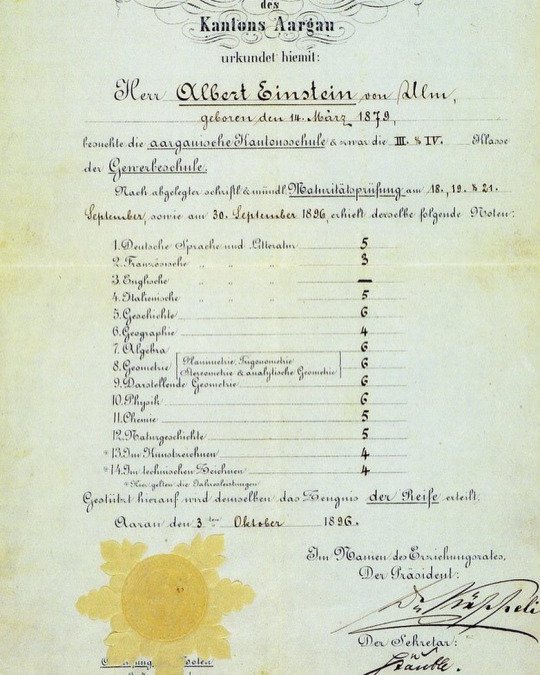 des
Kantons Aargau
urkundet hiemit:
Herr Albert Einstein von Ulm,
geboren den 14. März 1879,
besuchte die aargauische Kantonsschule & zwar die III. & IV. Klasse
der Gewerbeschule.
Nach abgelegter schriftl. & mündl. Maturitätsprüfung am 18., 19. & 21.
September, sowie am 30. September 1896, erhielt derselbe folgende Noten:
1. Deutsche Sprache und Litteratur 5
2. Französische „ „ „ 3
3. Englische „ „ „ —
4. Italienische „ „ „ 5
5. Geschichte 6
6. Geographie 4
7. Algebra 6
8. Geometrie Planimetrie, Trigonometrie 6
Stereometrie & analytische Geometrie
9. Darstellende Geometrie 6
10. Physik 6
11. Chemie 5
12. Naturgeschichte 5
*13. Im Kunstzeichnen 4
*14. Im technischen Zeichnen 4
*Hier gelten die Jahresleistungen
Gestützt hierauf wird demselben das Zeugnis der Reife erteilt.
Aarau den 3ten Oktober 1896.
Im Namen des Erziehungsrates,
Der Präsident:
Der Sekretär:
Stäuble.